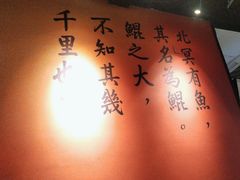 北冥有魚，
其名為鯤。
鯤之大，
不知其幾
千里也